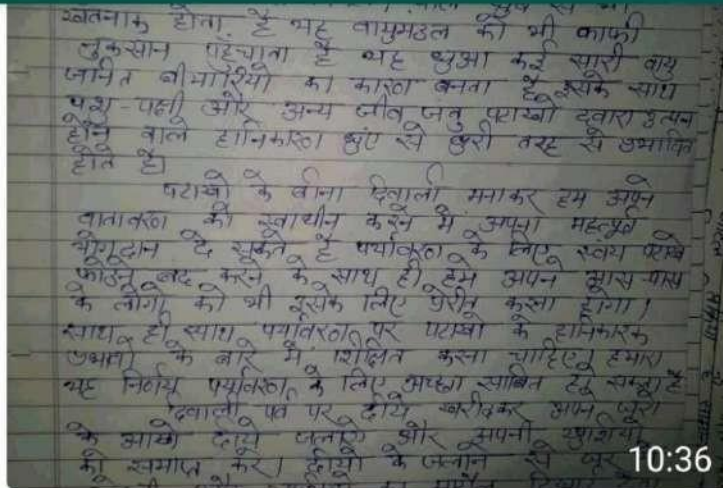 खतनाक होता है यह वायुमडल को भी काफी
नुकसान पहुँचाता है यह धुआ कई सारी वायु
जनित बीमारियो का कारण बनता है इसके साथ
पशु-पक्षी और अन्य जीव जंतु पटाखो द्वारा उत्पन
होने वाले हानिकारण धुंए से बुरी तरह से प्रभावित
होते है।
पटाखो के बीना दिवाली मनाकर हम अपने
वातावरण को स्वाधीन करने में अपना महत्वपूर्ण
योगदान दे सकते है पर्यावरण के लिए स्वंय पटाखे
फोडने बंद करने के साथ ही हमे अपने आस-पास
के लोगो को भी इसके लिए प्रेरीत करना होगा।
साथ ही साथ पर्यावरण पर पटाखो के हानिकारक
प्रभावो के बारे में शिक्षित करना चाहिए। हमारा
यह निर्णय पर्यावरण के लिए अच्छा साबित हो सकता है
दिवाली पर्व पर दीये खरीदकर अपने
के दीये जलाए और अपनी खुशियो
को समाप्त करे। दीयो के जलाने से
10:36